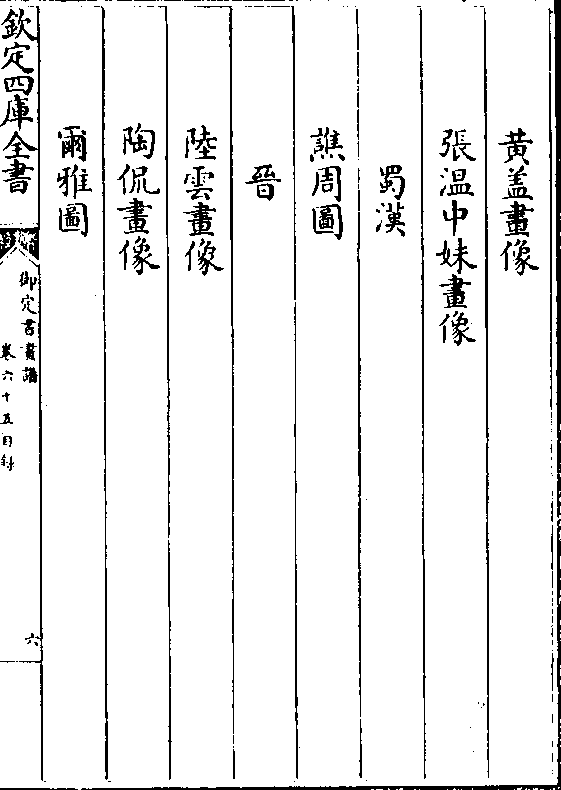 黄盖畫像
張温中妹畫像
蜀漢
譙周圖
晉
陸雲畫像
陶侃畫像
爾雅圖
欽定四庫全書
御定書畫譜
卷六十五目録
六